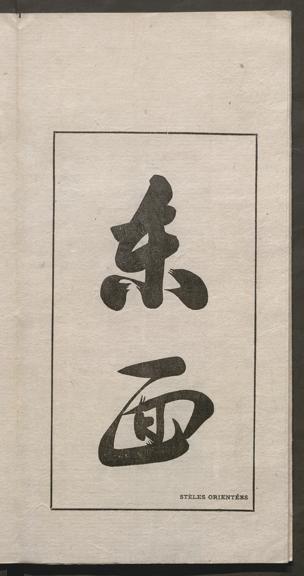 東
面
STÈLES ORIENTÉES